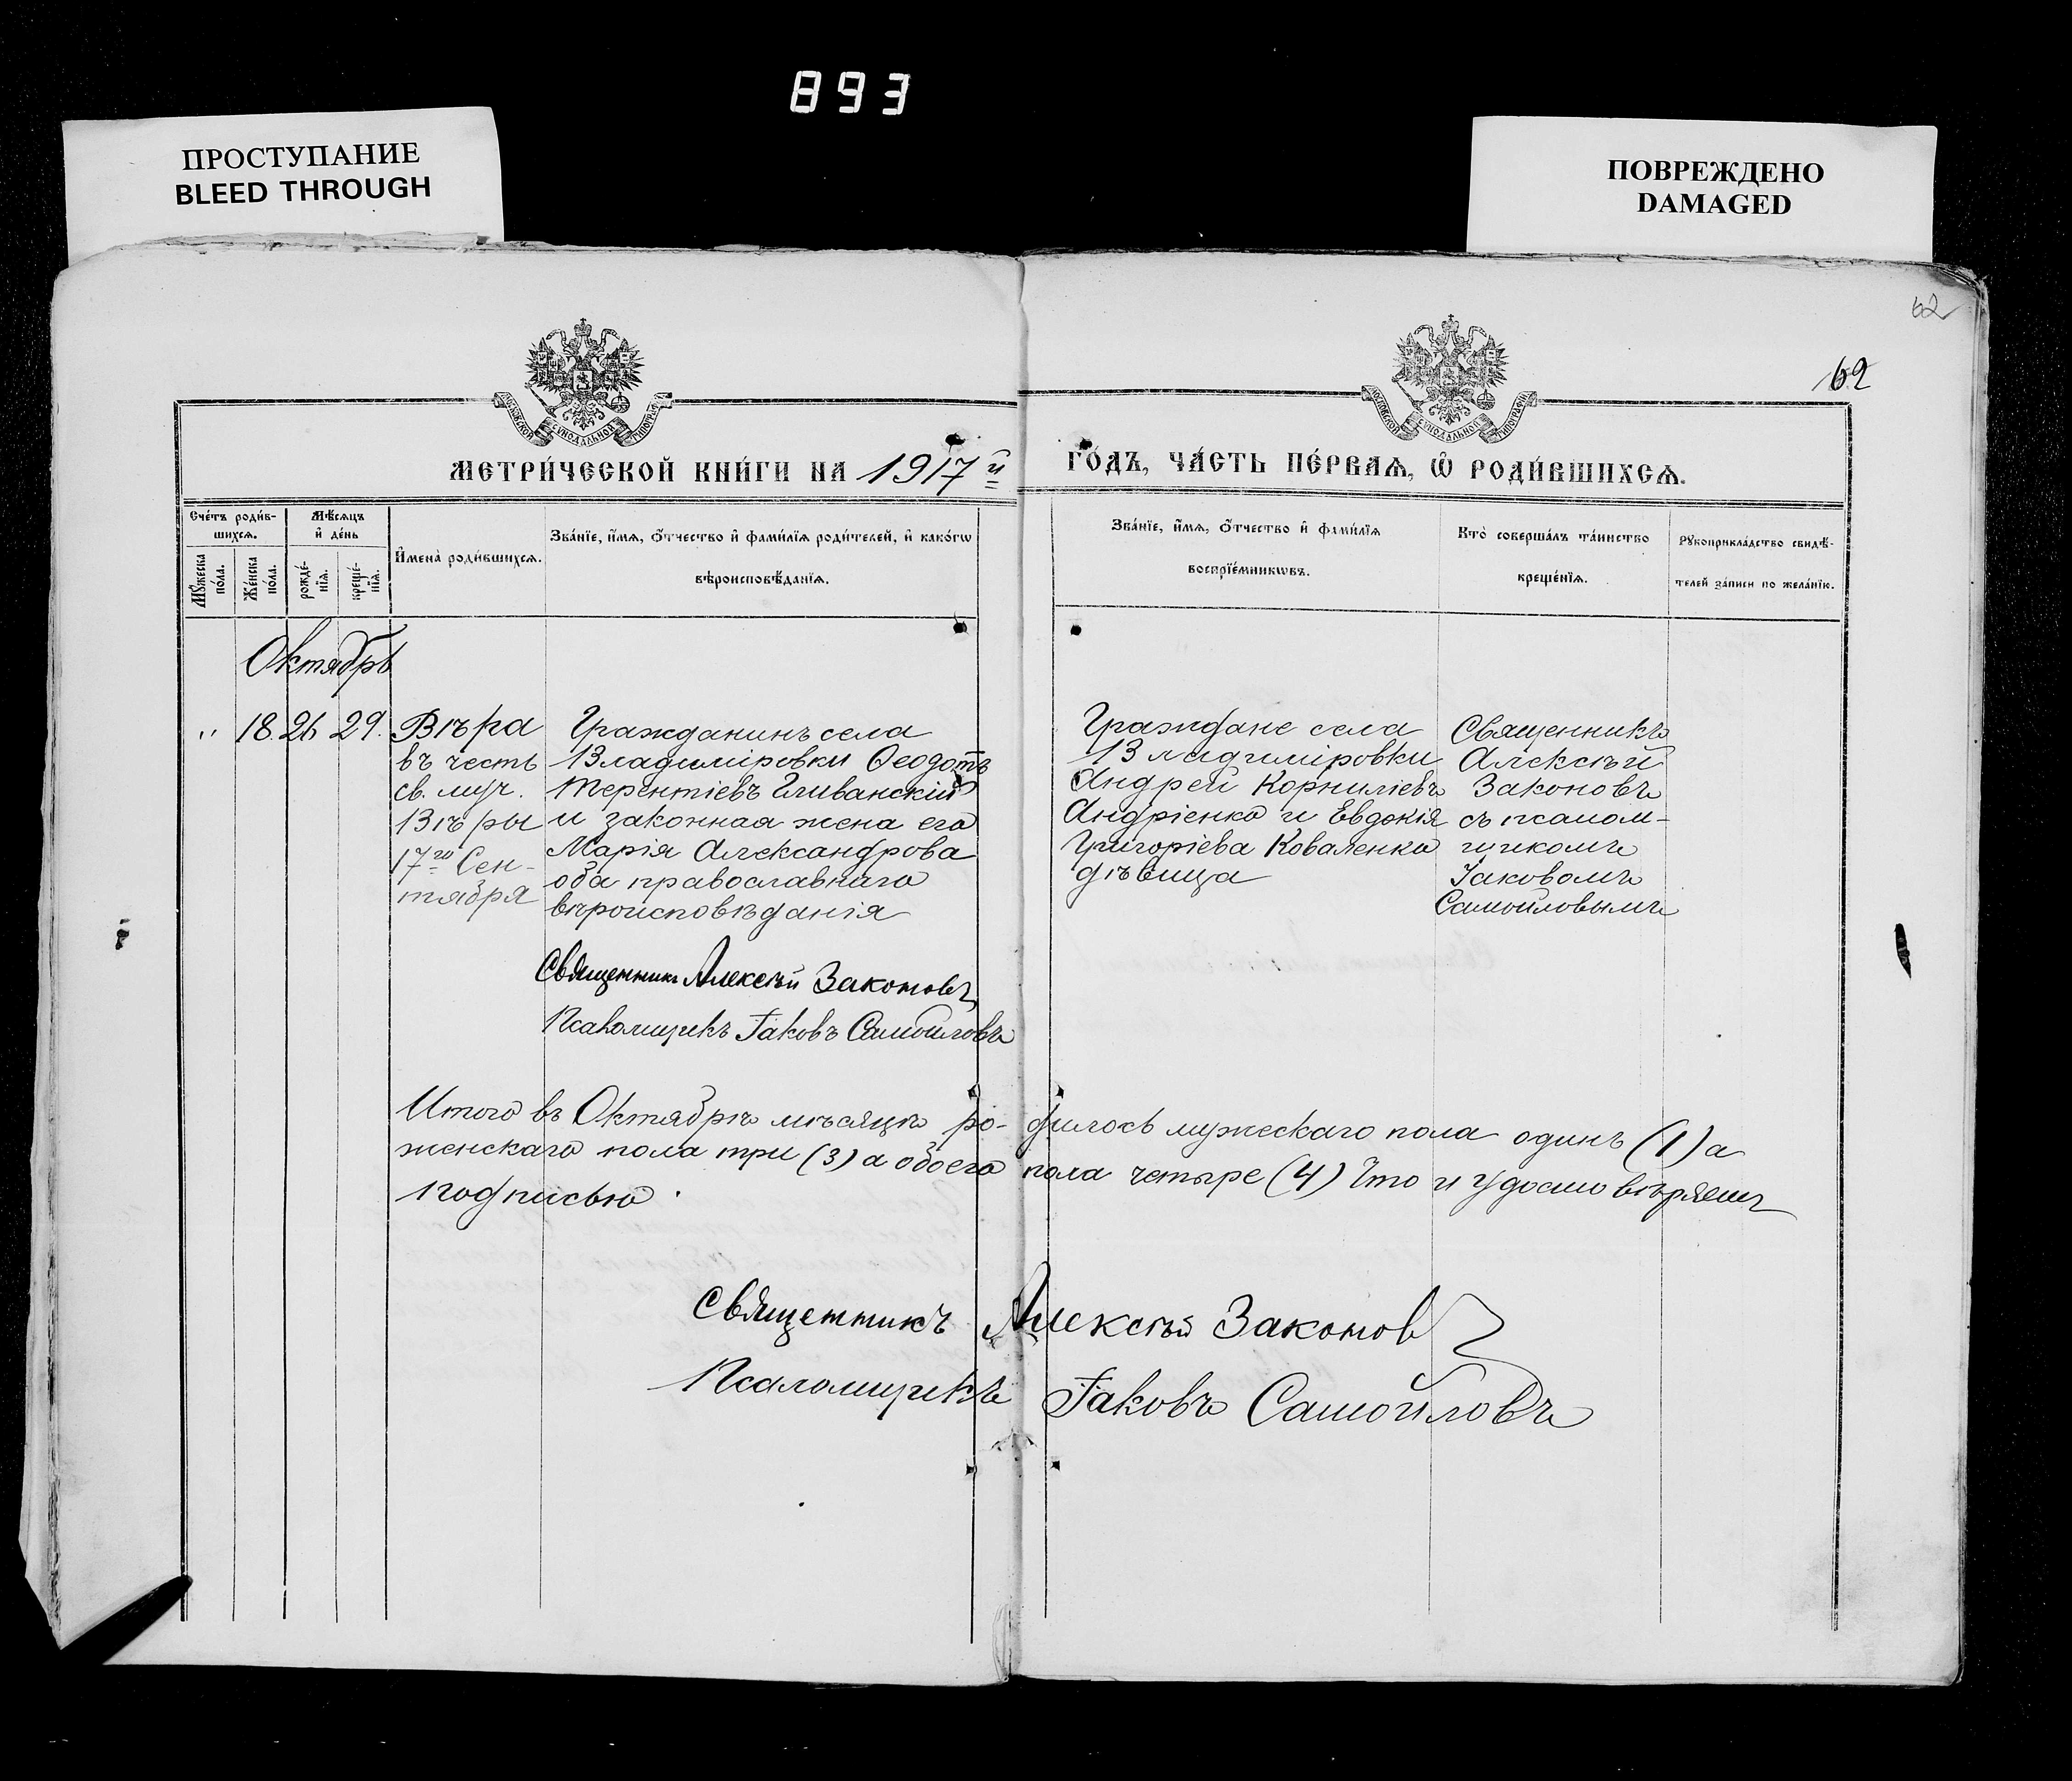 893
ПРОСТУПАНИЕ
BLEED THROUGH
ПОВРЕЖДЕНО
DAMAGED
62
62
МОСКОВСКОЙ СѴНОДАЛЬНОЙ ТИПОГРАФІИ
МОСКОВСКОЙ СѴНОДАЛЬНОЙ ТИПОГРАФІИ
МЕТРИ́ЧЕСКОЙ КНИ́ГИ НА 1917й
ГО́ДЪ, ЧА́СТЬ ПЕ́РВАѦ, Ѡ҆ РОДИ́ВШИХСѦ.
Сче́тъ роди́в-
шихсѧ.
Мѣ́сѧцъ
и҆ де́нь
Мꙋ́жеска
по́ла.
Же́нска
по́ла.
рожде́-
нїѧ.
креще́-
нїѧ.
И҆мена̀ роди́вшихсѧ.
Зва́нїе, и҆́мѧ, о҆́тчество и҆ фами́лїѧ роди́телей, и҆ како́гѡ
вѣроисповѣ́данїѧ.
Зва́нїе, и҆́мѧ, о҆́тчество и҆ фами́лїѧ
воспрїе́мникѡвъ.
Кто̀ соверша́лъ та́инство
креще́нїѧ.
Рꙋкоприкла́дство свидѣ́-
телей за́писи по жела́нїю.
Октябрь
" 18. 26 29.
Вѣра
въ честь
св. муч.
Вѣры
17го Сен-
тября
Гражданинъ села
Владиміровки Ѳеодотъ
Терентіевъ Гливанскій
и законная жена его
Марія Александрова
оба православнаго
вѣроисповѣданія
Граждане села
Владиміровки
Андрей Корниліевъ
Андріенко и Евдокія
Григоріева Коваленко
дѣвица
Священникъ
Алексѣй
Законовъ
съ псалом-
щикомъ
Іаковомъ
Самойловымъ
Священникъ Алексѣй Законовъ
Псаломщикъ Іаковъ Самойловъ
Итого въ Октябрѣ мѣсяцѣ ро- дилось мужескаго пола одинъ (1) а
женскаго пола три (3) а обоего пола четыре (4) Что и удостовѣряемъ
подписью.
Священникъ Алексѣй Законовъ
Псаломщикъ Іаковъ Самойловъ